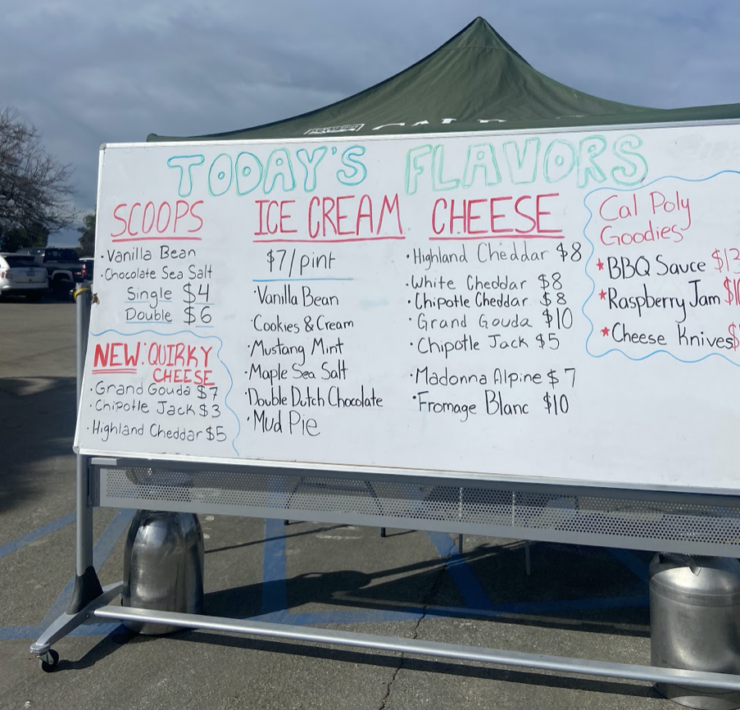 TODAY'S FLAVORS
SCOOPS
· Vanilla Bean
· Chocolate Sea Salt
Single $4
Double $6
NEW: QUIRKY
CHEESE
· Grand Gouda $7
· Chipotle Jack $3
· Highland Cheddar $5
ICE CREAM
$7/pint
· Vanilla Bean
· Cookies & Cream
· Mustang Mint
· Maple Sea Salt
· Double Dutch Chocolate
· Mud Pie
CHEESE
· Highland Cheddar $8
· White Cheddar $8
· Chipotle Cheddar $8
· Grand Gouda $10
· Chipotle Jack $5
· Madonna Alpine $7
· Fromage Blanc $10
Cal Poly
Goodies
* BBQ Sauce $13
* Raspberry Jam
* Cheese Knives